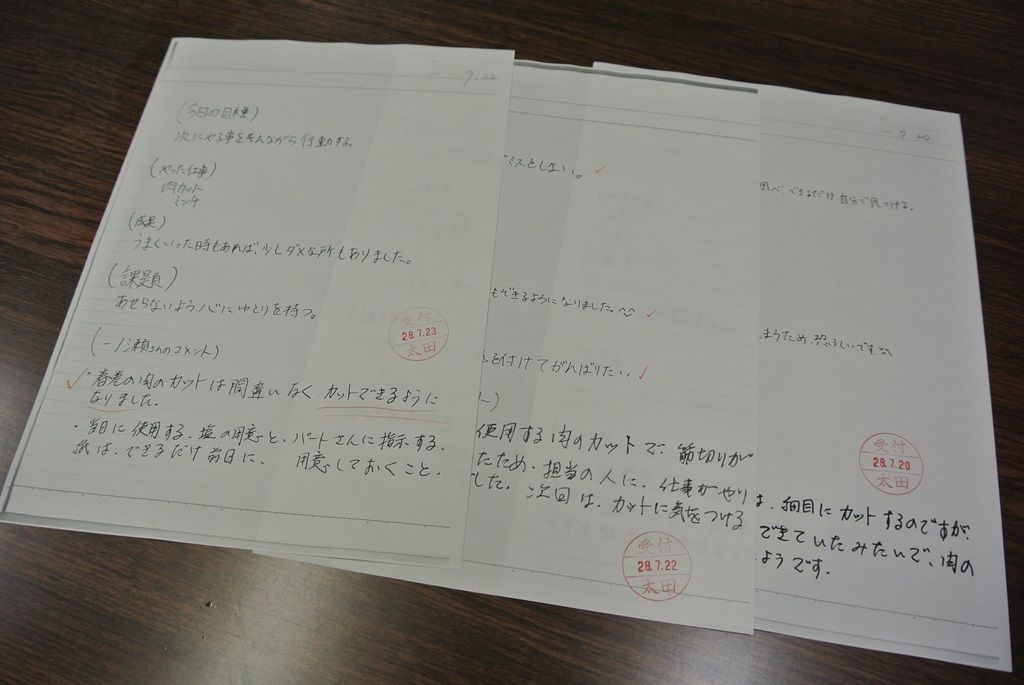 7.22
(今日の目標)
次にやる事を考えながら行動する。
(やった仕事)
肉カット
ミンチ
(成果)
うまくいった時もあれば、少しダメな所もありました。
(課題)
あせらないよう心にゆとりを持つ。
受付
28.7.23
太田
(一ノ瀬さんのコメント)
・春巻の肉のカットは間違いなく、カットできるように
なりました。
・当日に使用する、塩の用意と、パートさんに指示する、
紙は、できるだけ前日に、用意しておくこと。
ミスとしない。
もできるようになりました。^^
を付けてがんばりたい。
使用する肉のカットで、筋切りが
たため、担当の人に、仕事がやり
した。次回は、カットに気をつける
受付
28.7.22
太田
7.20
調べ、できるだけ自分で見つける。
まうため、恐ろしいです。
受付
28.7.20
太田
は、細目にカットするのですが、
できていたみたいで、肉の
ようです。